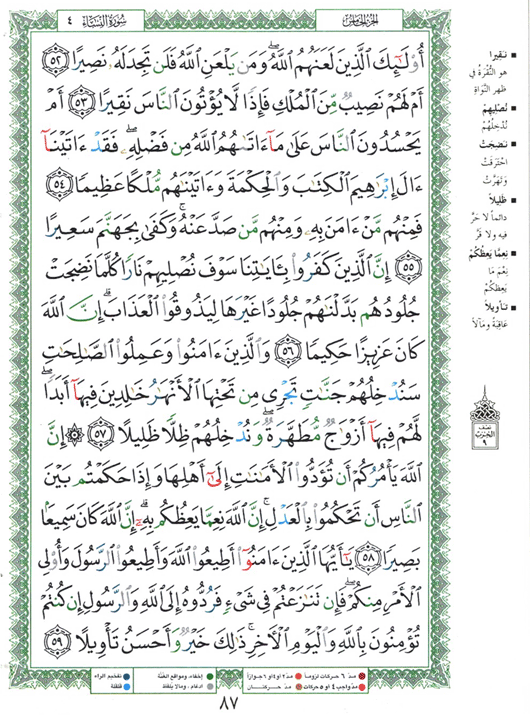 سُورَةُ النِّسَاءِ ٤
الجزء الخامس
أُو۟لَـٰٓئِكَ ٱلَّذِينَ لَعَنَهُمُ ٱللَّهُ ۖ وَمَن يَلْعَنِ ٱللَّهُ فَلَن تَجِدَ لَهُۥ نَصِيرًا ٥٢
أَمْ لَهُمْ نَصِيبٌ مِّنَ ٱلْمُلْكِ فَإِذًا لَّا يُؤْتُونَ ٱلنَّاسَ نَقِيرًا ٥٣ أَمْ
يَحْسُدُونَ ٱلنَّاسَ عَلَىٰ مَآ ءَاتَىٰهُمُ ٱللَّهُ مِن فَضْلِهِۦ ۖ فَقَدْ ءَاتَيْنَآ
ءَالَ إِبْرَٰهِيمَ ٱلْكِتَـٰبَ وَٱلْحِكْمَةَ وَءَاتَيْنَـٰهُم مُّلْكًا عَظِيمًا ٥٤
فَمِنْهُم مَّنْ ءَامَنَ بِهِۦ وَمِنْهُم مَّن صَدَّ عَنْهُ ۚ وَكَفَىٰ بِجَهَنَّمَ سَعِيرًا
٥٥ إِنَّ ٱلَّذِينَ كَفَرُوا۟ بِـَٔايَـٰتِنَا سَوْفَ نُصْلِيهِمْ نَارًا كُلَّمَا نَضِجَتْ
جُلُودُهُم بَدَّلْنَـٰهُمْ جُلُودًا غَيْرَهَا لِيَذُوقُوا۟ ٱلْعَذَابَ ۗ إِنَّ ٱللَّهَ
كَانَ عَزِيزًا حَكِيمًا ٥٦ وَٱلَّذِينَ ءَامَنُوا۟ وَعَمِلُوا۟ ٱلصَّـٰلِحَـٰتِ
سَنُدْخِلُهُمْ جَنَّـٰتٍ تَجْرِى مِن تَحْتِهَا ٱلْأَنْهَـٰرُ خَـٰلِدِينَ فِيهَآ أَبَدًا ۖ
لَّهُمْ فِيهَآ أَزْوَٰجٌ مُّطَهَّرَةٌ ۖ وَنُدْخِلُهُمْ ظِلًّا ظَلِيلًا ٥٧ ۞ إِنَّ
ٱللَّهَ يَأْمُرُكُمْ أَن تُؤَدُّوا۟ ٱلْأَمَـٰنَـٰتِ إِلَىٰٓ أَهْلِهَا وَإِذَا حَكَمْتُم بَيْنَ
ٱلنَّاسِ أَن تَحْكُمُوا۟ بِٱلْعَدْلِ ۚ إِنَّ ٱللَّهَ نِعِمَّا يَعِظُكُم بِهِۦٓ ۗ إِنَّ ٱللَّهَ كَانَ سَمِيعًۢا
بَصِيرًا ٥٨ يَـٰٓأَيُّهَا ٱلَّذِينَ ءَامَنُوٓا۟ أَطِيعُوا۟ ٱللَّهَ وَأَطِيعُوا۟ ٱلرَّسُولَ وَأُو۟لِى
ٱلْأَمْرِ مِنكُمْ ۖ فَإِن تَنَـٰزَعْتُمْ فِى شَىْءٍ فَرُدُّوهُ إِلَى ٱللَّهِ وَٱلرَّسُولِ إِن كُنتُمْ
تُؤْمِنُونَ بِٱللَّهِ وَٱلْيَوْمِ ٱلْـَٔاخِرِ ۚ ذَٰلِكَ خَيْرٌ وَأَحْسَنُ تَأْوِيلًا ٥٩
نَقِيرًا
هو النُّقْرَةُ في
ظهر النَّوَاةِ
نُصْلِيهِمْ
نُدْخِلُهُمْ
نَضِجَتْ
احْتَرَقَتْ
وَتَهَرَّتْ
ظَلِيلًا
دائماً لا حَرَّ
فيه ولا قَرَّ
نِعِمَّا يَعِظُكُمْ
نِعْمَ مَا
يَعِظُكُمْ
تَأْوِيلًا
عَاقِبَةً وَمَآلًا
نصف
الحزب
٩
مدّ ٦ حركات لزوماً
مدّ ٢ أو ٤ أو ٦ جوازاً
مدّ واجب ٤ أو ٥ حركات
مدّ حركتان
إخفاء، ومواقع الغُنَّة
ادغام، وما لا يُلفَظ
تفخيم الراء
قلقلة
٨٧